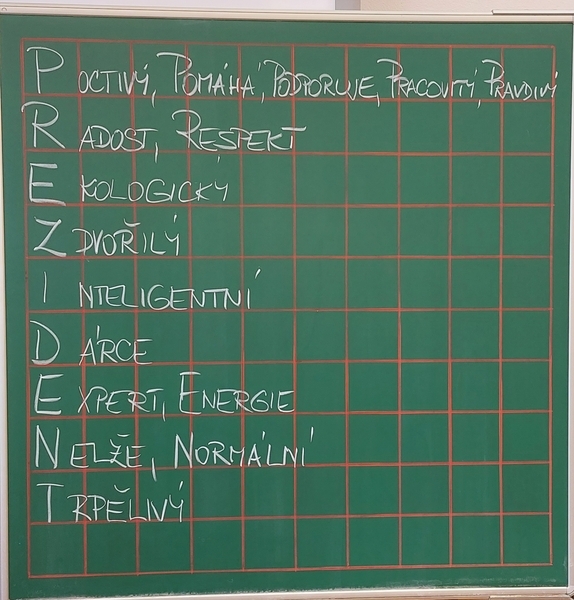 POCTIVÝ, POMÁHÁ, PODPORUJE, PRACOVITÝ, PRAVDIVÝ
RADOST, RESPEKT
EKOLOGICKÝ
ZDVOŘILÝ
INTELIGENTNÍ
DÁRCE
EXPERT, ENERGIE
NELŽE, NORMÁLNÍ
TRPĚLIVÝ